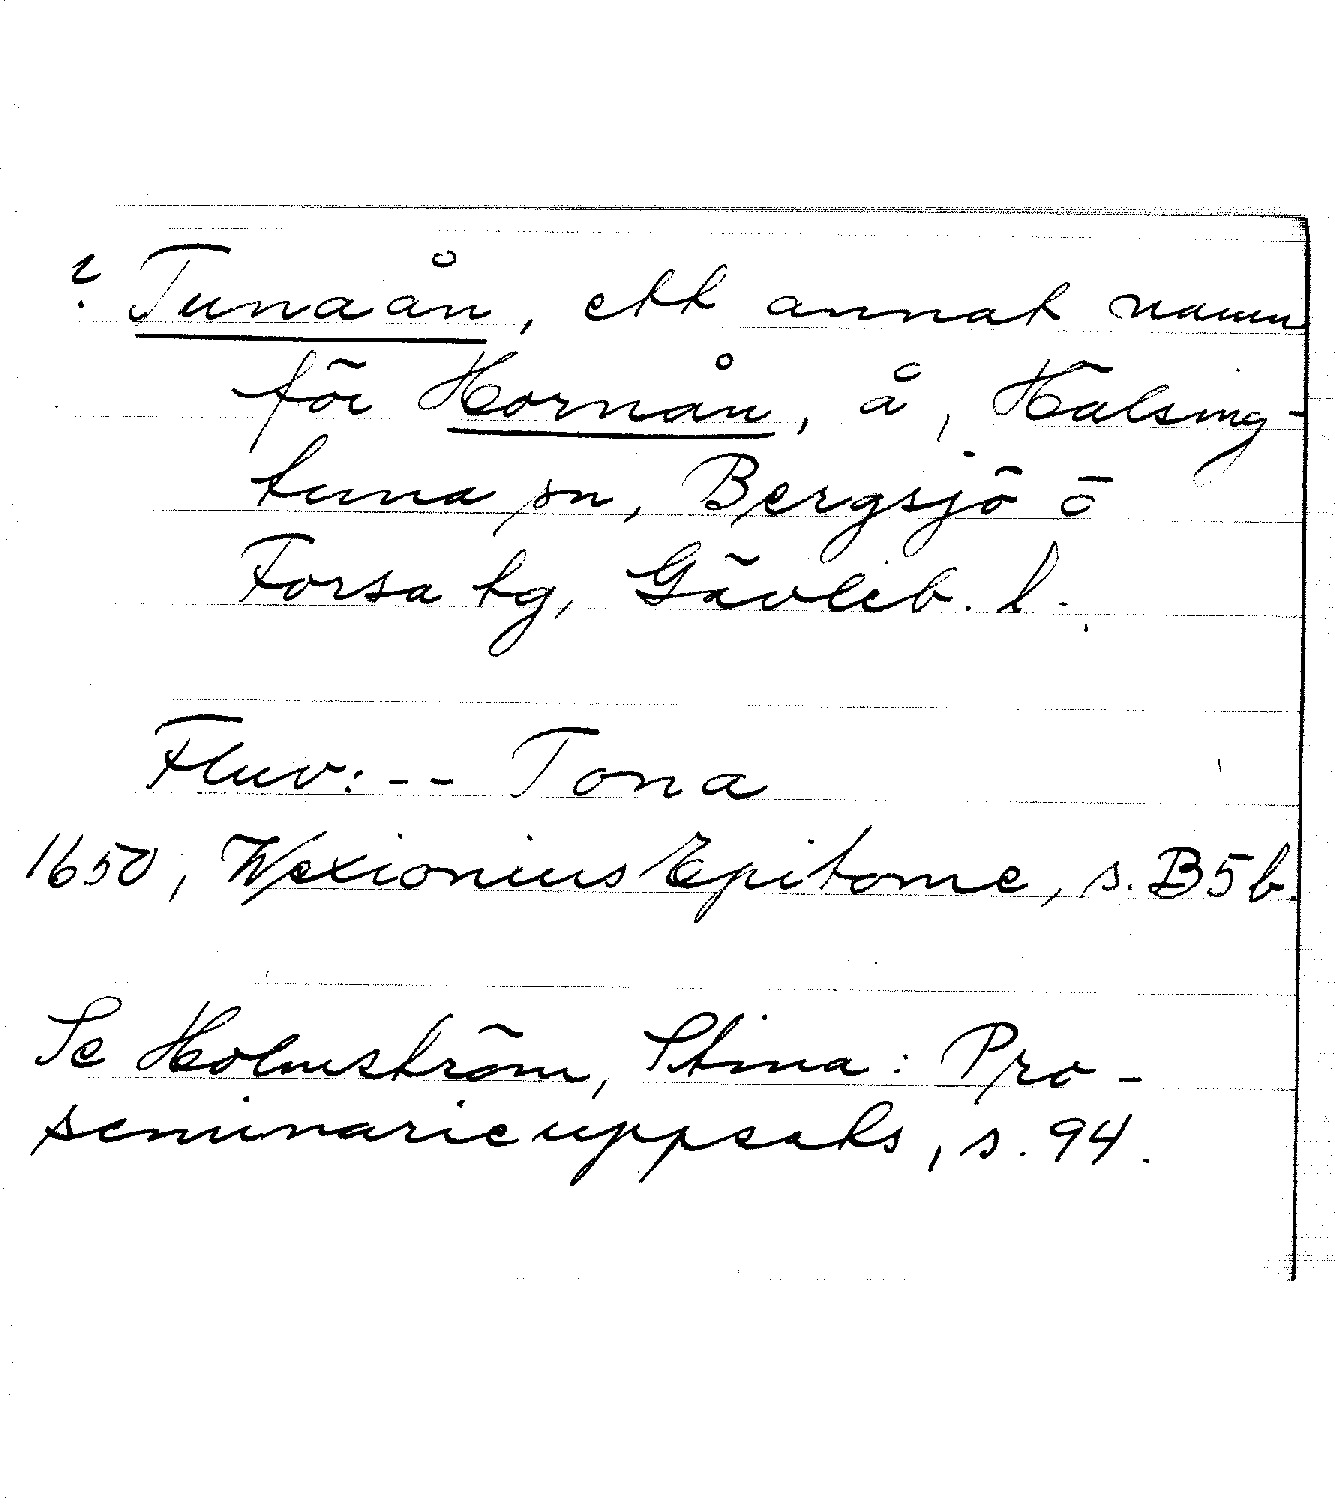 ? Tunaån, ett annat namn
för Hornån, å, Hälsing-
tuna sn, Bergsjö o
Forsa tg, Gävleb. l.
Fluv: -- Tona
1650, Wexionius Epitome, s. B5b.
Se Holmström, Stina: Pro-
seminarieuppsats, s. 94.